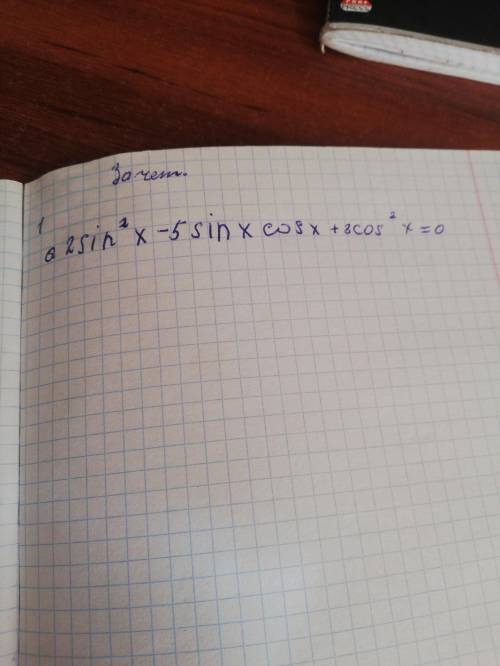 Зачет.
1
a 2sin² x -5 sin x cos x + 3cos² x = 0